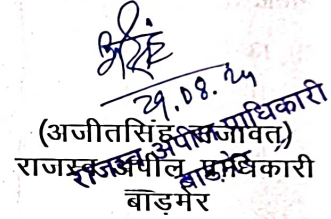 29.08.24
(अजीतसिंह राजावत)
राजस्व अपील प्राधिकारी
बाड़मेर
राजस्व अपील प्राधिकारी
बाड़मेर